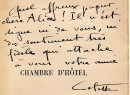 Quel affreux papier,
chère Alice ! Il n'est
digne ni de vous, ni
des sentiments très
fidèles qui attachent
à vous votre amie
CHAMBRE D'HÔTEL
Colette